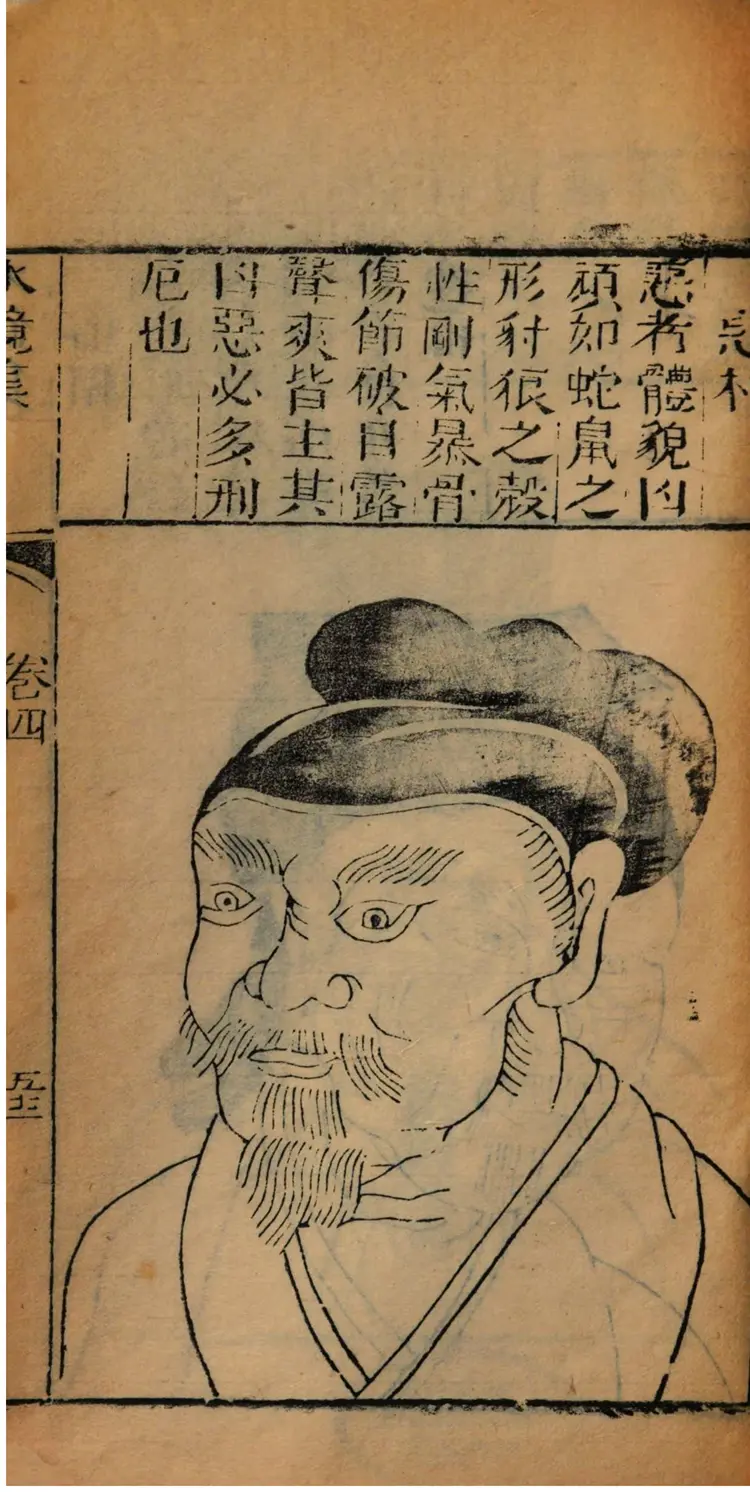 惡相
惡者體貌凶
頑如蛇鼠之
形豺狼之殺
性剛氣暴骨
傷節破目露
聲爽皆主其
凶惡必多刑
厄也
水鏡集
卷四